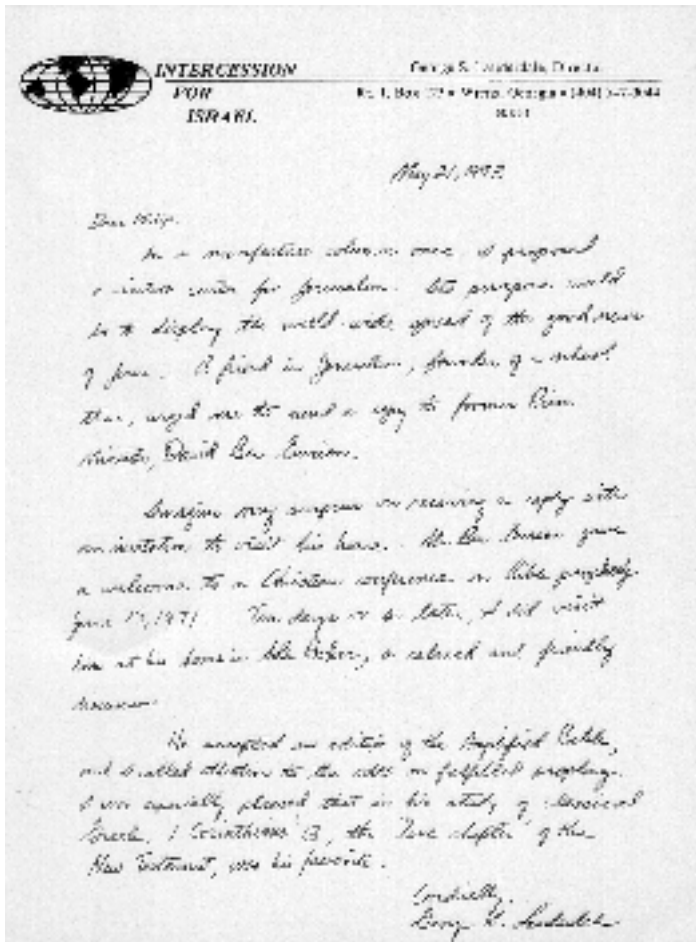 INTERCESSION
FOR
ISRAEL
George S. Lauderdale, Director
Rt. 1, Box Georgia (404)
May 21,
Dear
In a newspaper column once, I proposed
a center for Jerusalem. Its purpose would
be to display the world-wide spread of the good news
of Jesus. A friend in Jerusalem, founder of a school
there, urged me to send a copy to former Prime
Minister, David Ben Gurion.
Imagine my surprise on receiving a reply with
an invitation to visit his home. Mr. Ben Gurion gave
a welcome to a Christian conference on Bible prophecy
June 15, 1971. Ten days or so later, I did visit
him at his home in Sde Boker, a relaxed and friendly
He accepted an edition of the Amplified Bible,
and I called attention to the notes on fulfilled prophecy.
I was especially pleased that in his study of classical
Greek, 1 Corinthians 13, the "love chapter" of the
New Testament, was his favorite.
Cordially,
Lauderdale